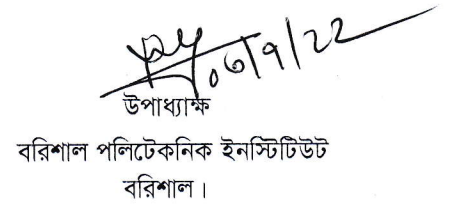 ০৬/৭/২২
উপাধ্যক্ষ
বরিশাল পলিটেকনিক ইনস্টিটিউট
বরিশাল।